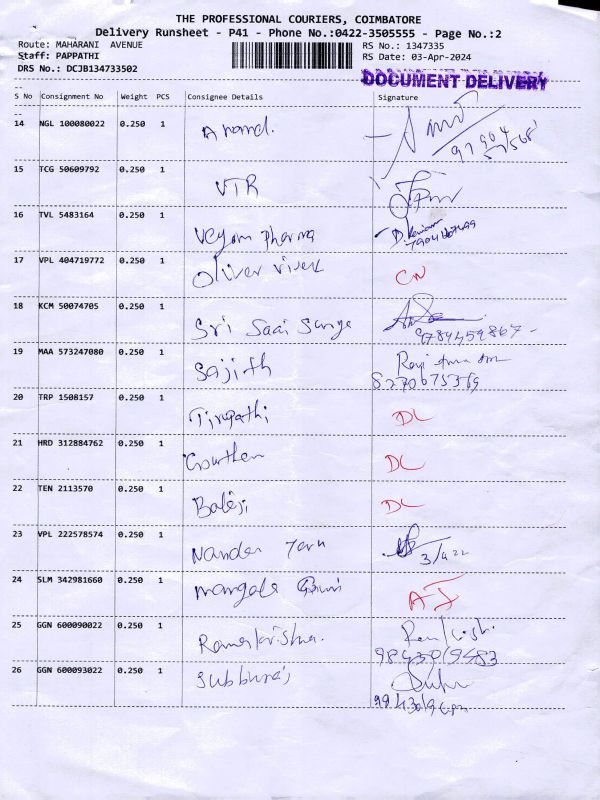 THE PROFESSIONAL COURIERS, COIMBATORE
Delivery Runsheet - P41 - Phone No.:0422-3505555 - Page No.:2
Route: MAHARANI AVENUE RS No.: 1347335
Staff: PAPPATHI RS Date: 03-Apr-2024
DRS No.: DCJB134733502
DOCUMENT DELIVERY
S No Consignment No Weight PCS Consignee Details Signature
14 NGL 100080022 0.250 1 Anand.
15 TCG 50609792 0.250 1 VTR
16 TVL 5483164 0.250 1 Pharma
17 VPL 404719772 0.250 1 Oliver CN
18 KCM 50074705 0.250 1 Sri Saai
9784459867
19 MAA 573247080 0.250 1 Sajith
8270675369
20 TRP 1508157 0.250 1 Tirupathi DL
21 HRD 312884762 0.250 1 Gowthem DL
22 TEN 2113570 0.250 1 Baleji DL
23 VPL 222578574 0.250 1 Nanden
24 SLM 342981660 0.250 1 Mangale
25 GGN 600090022 0.250 1 Ramakrishna.
9843019483
26 GGN 600093022 0.250 1 Subburaj